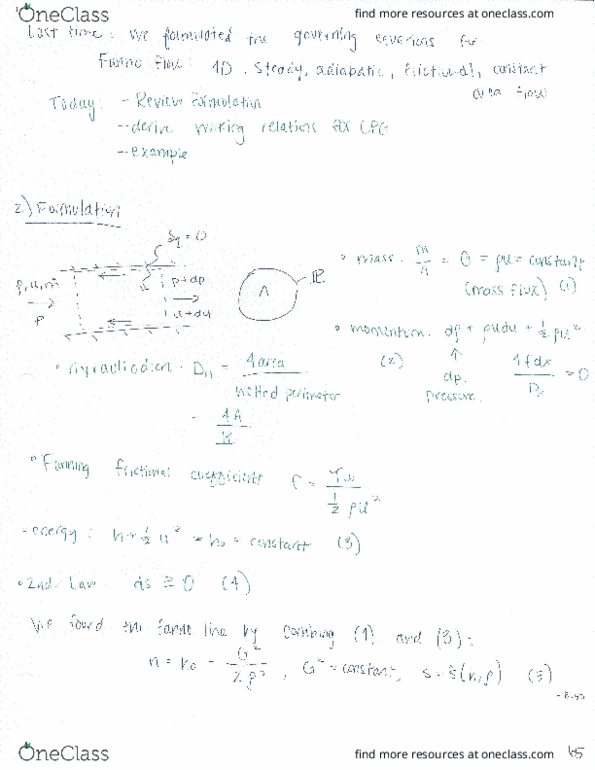 OneClass
find more resources at oneclass.com
Last time: We formulated the governing equations for
Fanno Flow: 1D, Steady, adiabatic, frictional, constant
area flow
Today: - Review Formulation
- derive working relations for CPG
- example
2.) Formulation
δq = 0
ρ, u, m
P
p + dp
u + du
A
ℙ
• mass: ṁ/A = G = ρu = constant
(mass flux) (1)
• momentum: dp + ρudu + ½ ρu² 4fdx/D_H = 0
(2)
↑
dp,
pressure
• Hydraulic diam: D_H = 4 area / wetted perimeter
= 4A / ℙ
• Fanning frictional coefficient f = τw / ½ ρu²
- energy: h + ½ u² = h₀ = constant (3)
• 2nd Law ds ≥ 0 (4)
We found the fanno line by combing (1) and (3):
h = h₀ - G² / 2ρ², G² = constant, s = s(h, ρ) (5)
OneClass
find more resources at oneclass.com